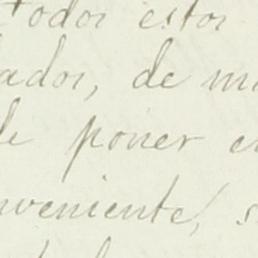 todos estos
ados, de m
de poner e
nveniente, s